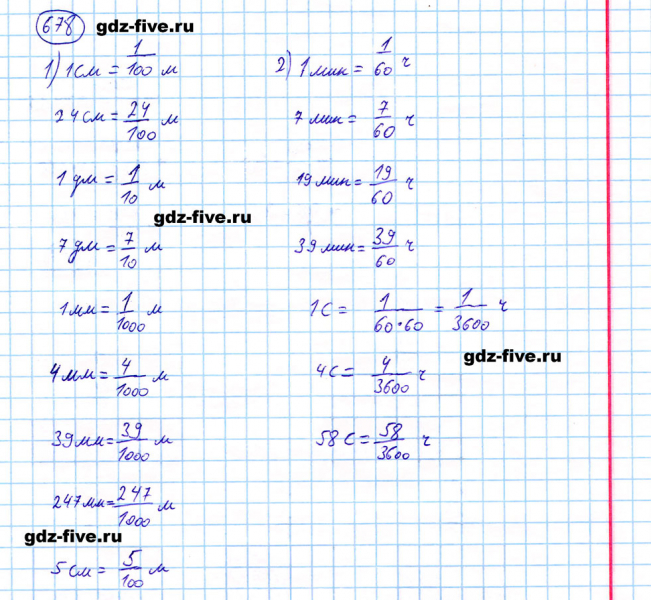 678 gdz-five.ru
1) 1 см = 1/100 м
24 см = 24/100 м
1 дм = 1/10 м
gdz-five.ru
7 дм = 7/10 м
1 мм = 1/1000 м
4 мм = 4/1000 м
39 мм = 39/1000 м
247 мм = 247/1000 м
gdz-five.ru
5 см = 5/100 м
2) 1 мин = 1/60 ч
7 мин = 7/60 ч
19 мин = 19/60 ч
39 мин = 39/60 ч
1 С = 1/60·60 = 1/3600 ч
gdz-five.ru
4 С = 4/3600 ч
58 С = 58/3600 ч